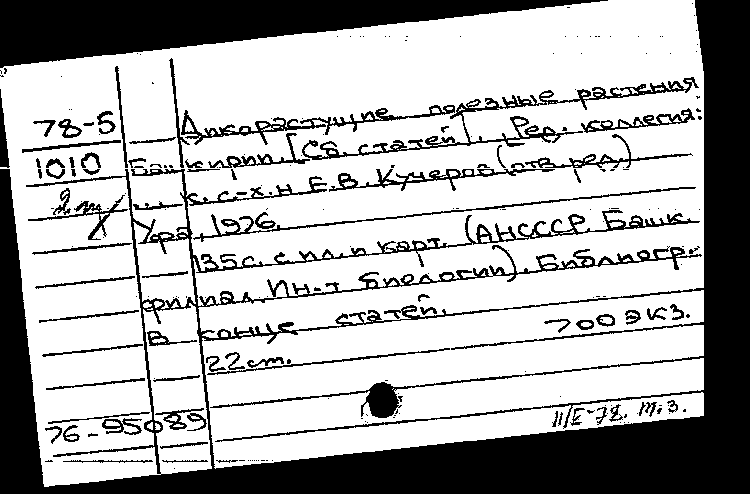 78-5 Дикорастущие полезные растения
1010 Башкирии. [Сб. статей]. Ред. коллегия:
... к. с-х. н Е.В. Кучеров (отв. ред.)
Уфа, 1976.
135с. с ил. и карт. (АНСССР. Башк.
филиал. Ин-т биологии). Библиогр.
в конце статей.
700 экз.
22 см.
76-95089
II/I-78. М.З.